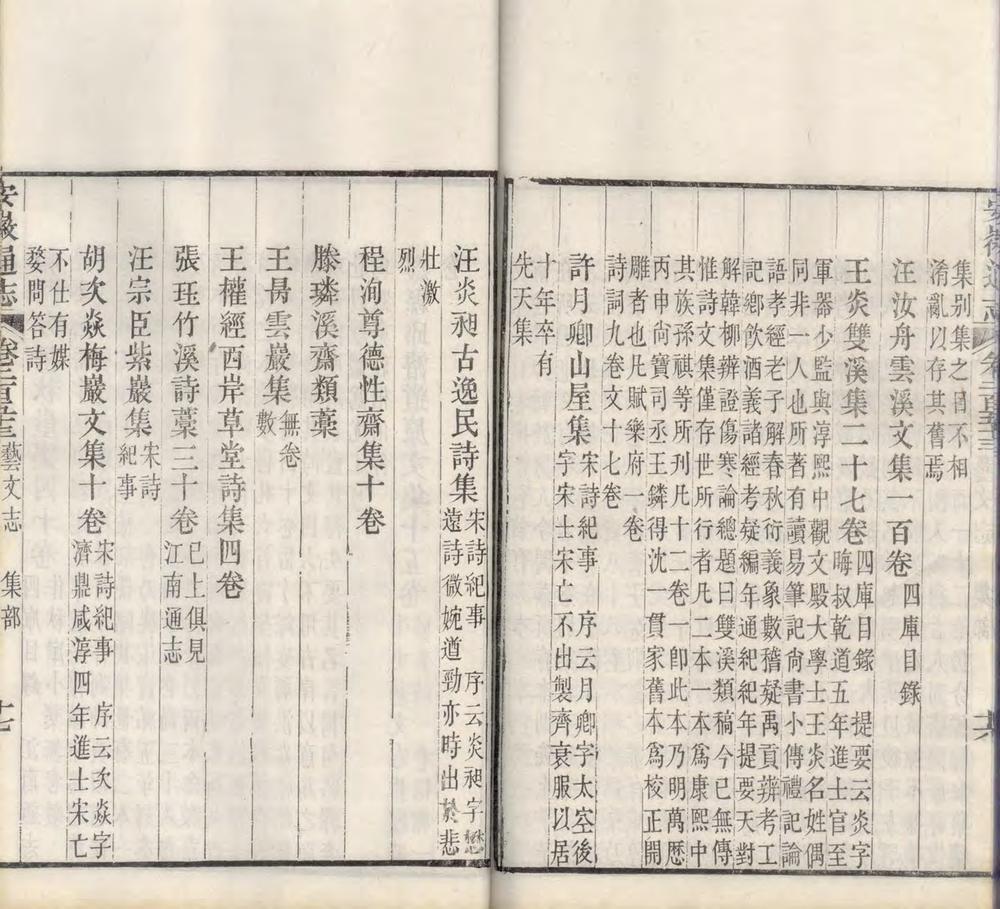 集別集之目不相
淆亂以存其舊焉
汪汝舟雲溪文集一百卷四庫目錄
王炎雙溪集二十七卷四庫目錄 提要云炎字
晦叔乾道五年進士官至
軍器少監與淳熙中觀文殿大學士王炎名姓偶
同非一人也所著有讀易筆記尚書小傳禮記論
語孝經老子解春秋衍義象數稽疑禹貢辨考工
記鄉飲酒義諸經考疑編年通紀紀年提要天對
解韓柳辨證傷寒論總題曰雙溪類稿今已無傳
惟詩文集僅存世所行者凡二本一本爲康熙中
其族孫祺等所刊凡十二卷一卽此本乃明萬厯
丙申尙寶司丞王鏻得沈一貫家舊本爲校正開
雕者也凡賦樂府一卷
詩詞九卷文十七卷
許月卿山屋集宋詩紀事 序云月卿字太空後
字宋士宋亡不出製齊衰服以居
十年卒有
先天集
汪炎昶古逸民詩集宋詩紀事 序云炎昶字懋
遠詩微婉遒勁亦時出於悲
壯激
烈
程洵尊德性齋集十卷
滕璘溪齋類藁
王昺雲巖集無卷
數
王權經西岸草堂詩集四卷
張珏竹溪詩藁三十卷已上俱見
江南通志
汪宗臣紫巖集宋詩
紀事
胡次焱梅巖文集十卷宋詩紀事 序云次焱字
濟鼎咸淳四年進士宋亡
不仕有媒
嫠問答詩
安徽通志 藝文志 集部 十七